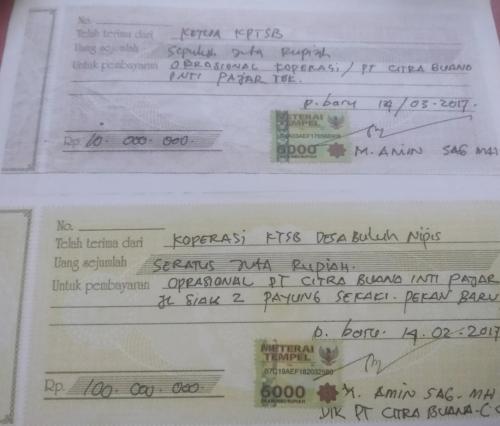 No.
Telah terima dari KETUA KPTSB
Uang sejumlah Sepuluh Juta Rupiah
Untuk pembayaran OPRASIONAL KOPERASI/ PT CITRA BUANO
INTI PAJAR TBK.
P. baru 14/03-2017
METERAI
TEMPEL
6000
Rp. 10.000.000.
M. AMIN SAG MH
No.
Telah terima dari KOPERASI KTSB DESA Buluh Nipis
Uang sejumlah SERATUS JUTA RUPIAH.
Untuk pembayaran OPRASIONAL PT CITRA BUANO INTI PAJAR
JL SIAK 2 PAYUNG SEKAKI. PEKAN BARU
P. baru. 14-02-2017
METERAI
TEMPEL
6000
Rp. 100.000.000.
M. AMIN SAG-MH
DIK PT CITRA BUANA-C